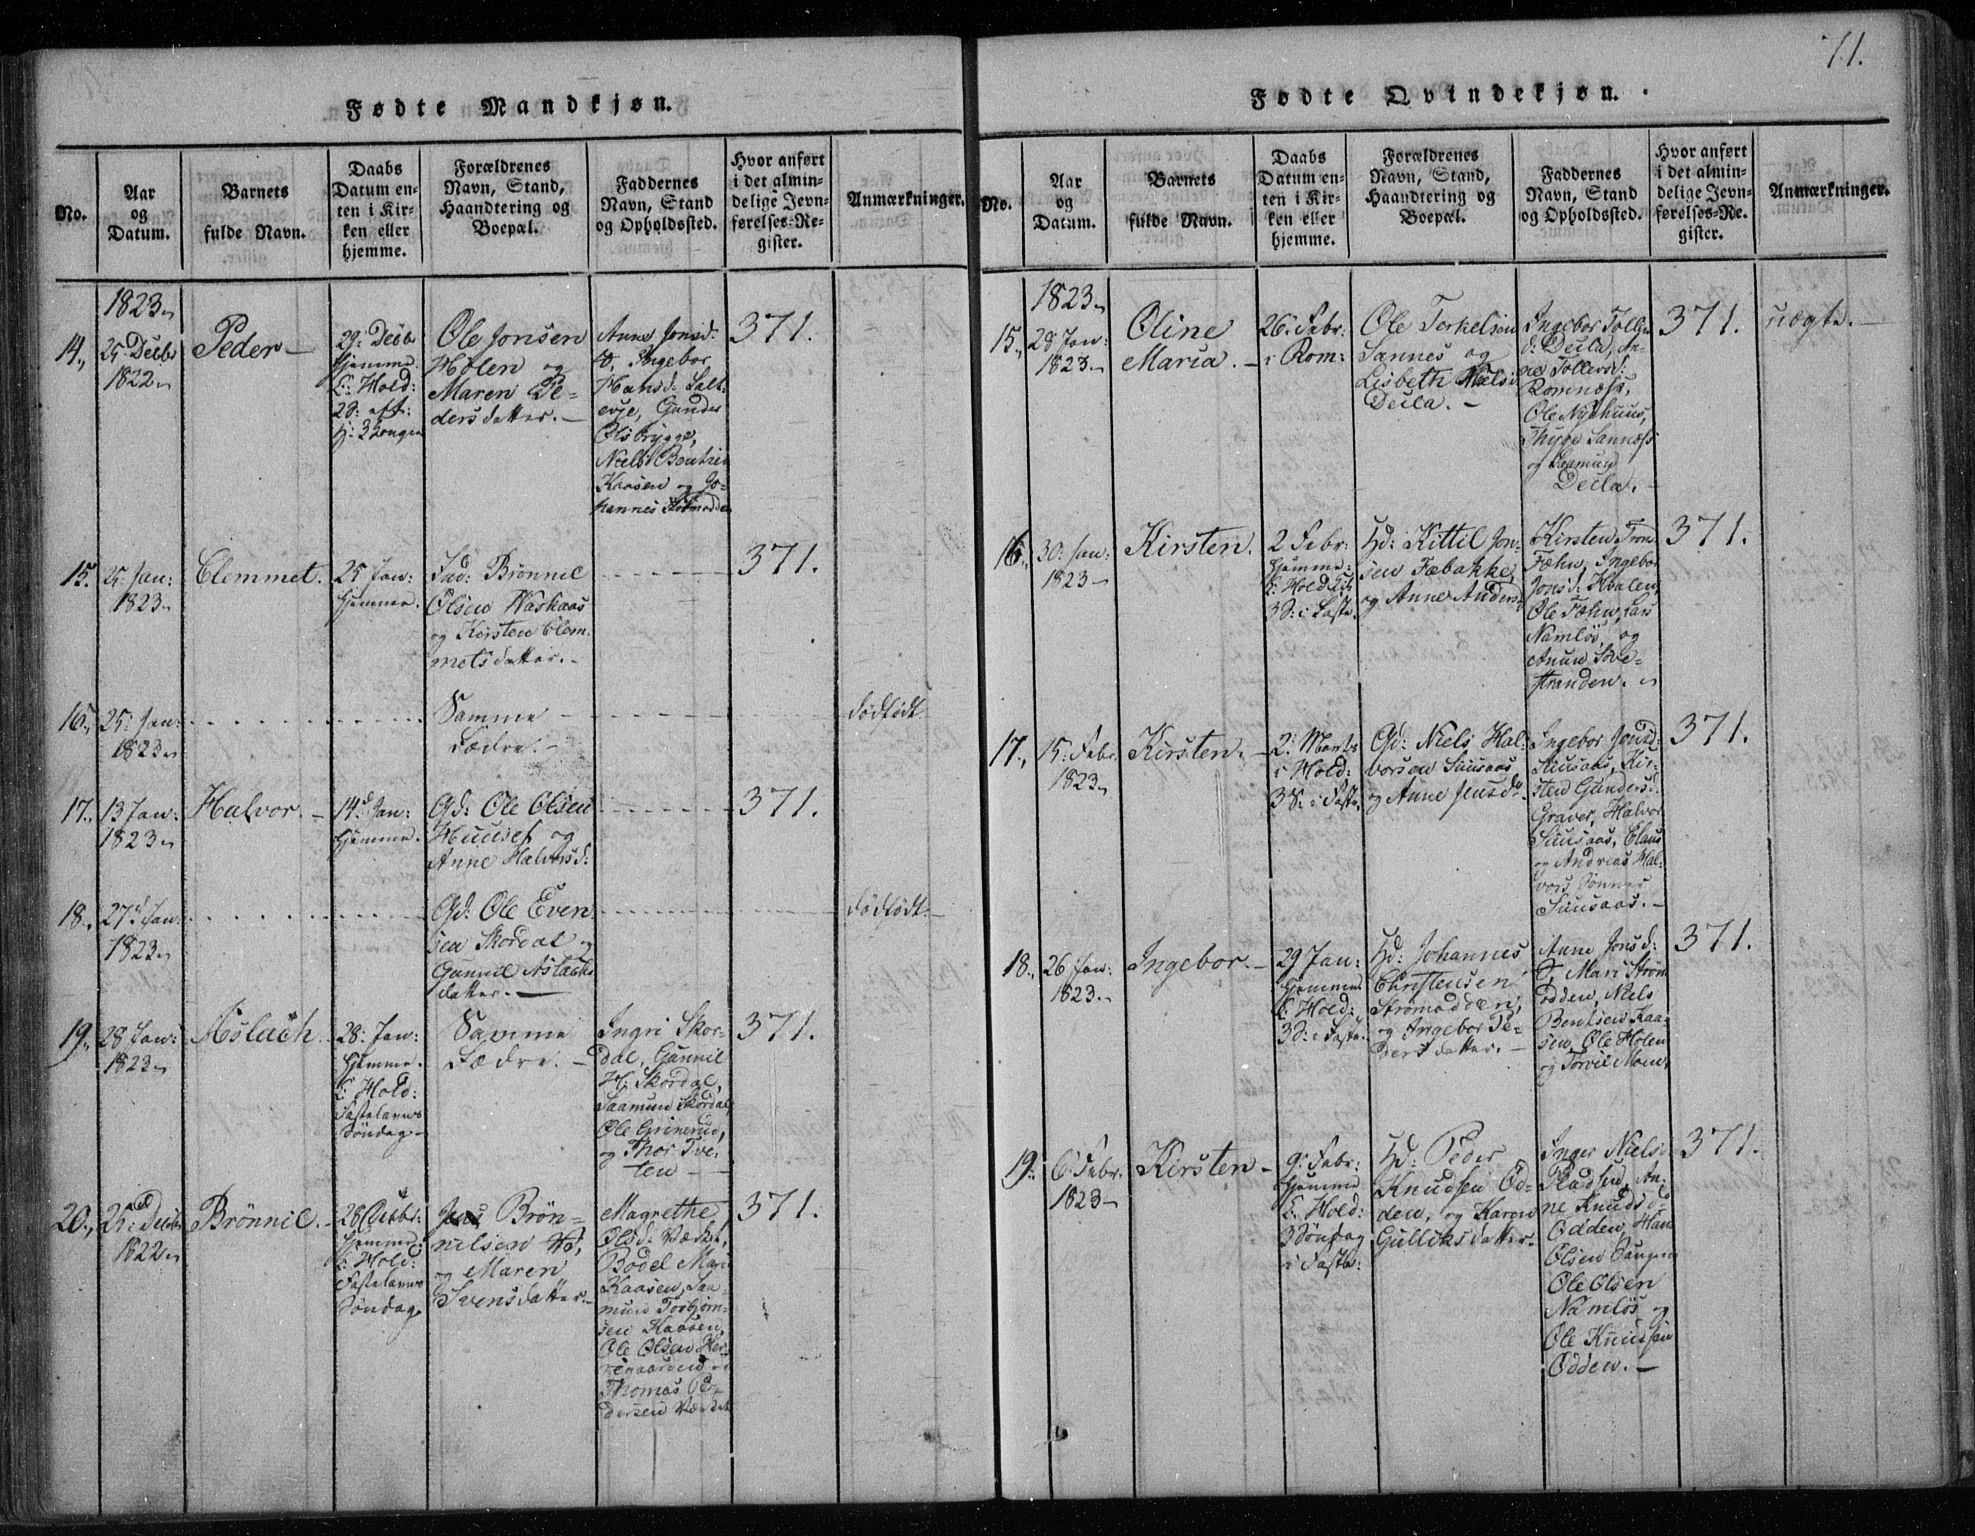 71.
Fødte Mandkjøn.
No.
Aar
og
Datum.
Barnets
fulde Navn.
Daabs
Datum en-
ten i Kir-
ken eller
hjemme.
Forældrenes
Navn, Stand,
Haandtering og
Boepæl.
Faddernes
Navn, Stand
og Opholdssted.
Hvor anført
i det almin-
delige Jevn-
førelses-Re-
gister.
Anmærkninger.
1823
14.
25 Decbr
1822
Peder
29: Decbr
hjemme
C: Hold:
2d: eft:
H: 3 Konger
Ole Jonsen
Holen og
Maren Pe-
dersdatter.
Anne Jonsd:
Ingebor
Hansd: Salt-
Gunder
Olsbrygge,
Niels Bentsen
Kaasen og Jo-
hannes
371.
15.
25: Jan:
1823
Clemmet.
25 Jan:
hjemme.
Brönnil
Olsen Waskaas
og Kirsten Clem-
metsdatter.
371.
16.
25: Jan:
1823
Samme
Fædre.
dødfødt
17.
13 Jan:
1823
Halvor.
14d Jan:
hjemme.
Gd: Ole Olsen
Huuset og
Anne Halvorsd:
371.
18.
27d Jan:
1823
Gd: Ole Even-
sen Skordal og
Gunnil Aslachs-
datter.
dødfødt.
19.
28 Jan:
1823
Aslach
28: Jan:
hjemme.
C: Hold:
Fastelavns
Söndag
Samme
Fædre.
Ingri Skor-
dal, Gunnil
H: Skordal,
Saamund Skordal,
Ole Grinerud,
og Thor Tve-
ten
371.
20.
25: Decbr
1822
Brönnil
28 Decbr:
hjemme
C: Hold:
Fastelavns
Söndag.
Jens Brön-
nilsen
og Maren
Svensdatter.
Magrethe
Olsd:
Bodel Mari
Kaasen, Saa-
mund Torbjörn-
sen Kaasen,
Ole Olsen Her-
regaarden og
Thomas Pe-
dersen
371.
Fødte Qvindekjøn.
No.
Aar
og
Datum.
Barnets
fulde Navn.
Daabs
Datum en-
ten i Kir-
ken eller
hjemme.
Forældrenes
Navn, Stand,
Haandtering og
Boepæl.
Faddernes
Navn, Stand
og Opholdssted.
Hvor anført
i det almin-
delige Jevn-
førelses-Re-
gister.
Anmærkninger.
1823
15.
28 Jan:
1823
Oline
Maria.
26: Febr:
i Rom:
Ole Terkelsen
Sannes og
Lisbeth Nielsd
Deila.
Ingebor Tollev
d: Deila, An-
ne Tollevsd:
Romnæss,
Ole Nyehuus,
Thyge Sannæss
og Saamund
Deila.
371.
uægte.
16.
30: Jan:
1823
Kirsten.
2 Febr:
hjemme.
C: Hold:
3S: i Faste.
Hd: Kittil Jon-
sen Fæbakke,
og Anne Anders
Kirsten
Fæhn, Ingebor
Jonsd: Hvalen,
Ole Fæhn, Lars
Namlös og
Anun
stranden.
371.
17.
15: Febr
1823
Kirsten.
2: Marts
i Hold:
3S: i Faste.
Gd: Niels Hal-
vorsen Suusaas
og Anne Jensd
Ingebor Jensd:
Suusaas, Kir-
sten Gundersd:
Graver, Halvor
Suusaas, Claus
og Andreas Hal-
vors Sönner
Suusaas.
371.
18.
26 Jan:
1823
Ingebor.
29 Jan:
hjemme
C: Hold:
3S: i Faste.
Hd: Johannes
Christensen
Strömodden,
og Ingebor Pe-
dersdatter.
Anne Jonsd:
Mari Ström-
odden, Niels
Bentsen Kaa-
sen, Ole Holen
og Torvil Moen,
371.
19.
6 Febr.
1823
Kirsten
9: Febr:
hjemme
C: Hold:
3 Söndag
i Faste:
Hd: Peder
Knudsen Od-
den, og Karen
Gulliksdatter.
Inger Nielsd
An-
ne Knudsd
Odden, Hans
Olsen
Ole Olsen
Namlös og
Ole Knudsen
Odden.
371.